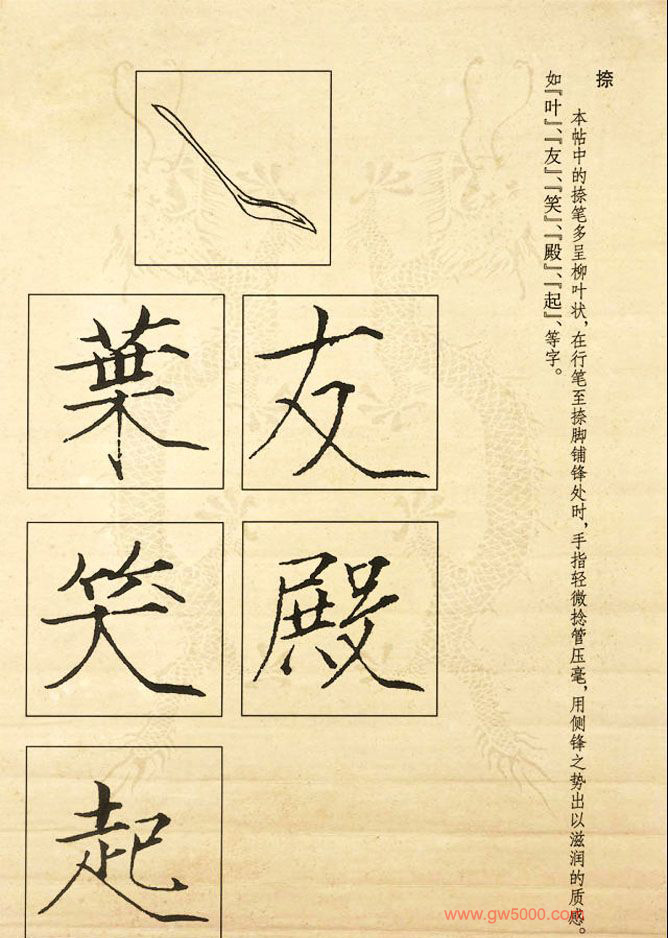 捺
本帖中的捺笔多呈柳叶状，在行笔至捺脚铺锋处时，手指轻微捻管压毫，用侧锋之势出以滋润的质感。
如『叶』、『友』、『笑』、『殿』、『起』、等字。
友
葉
殿
笑
起
www.gw5000.com